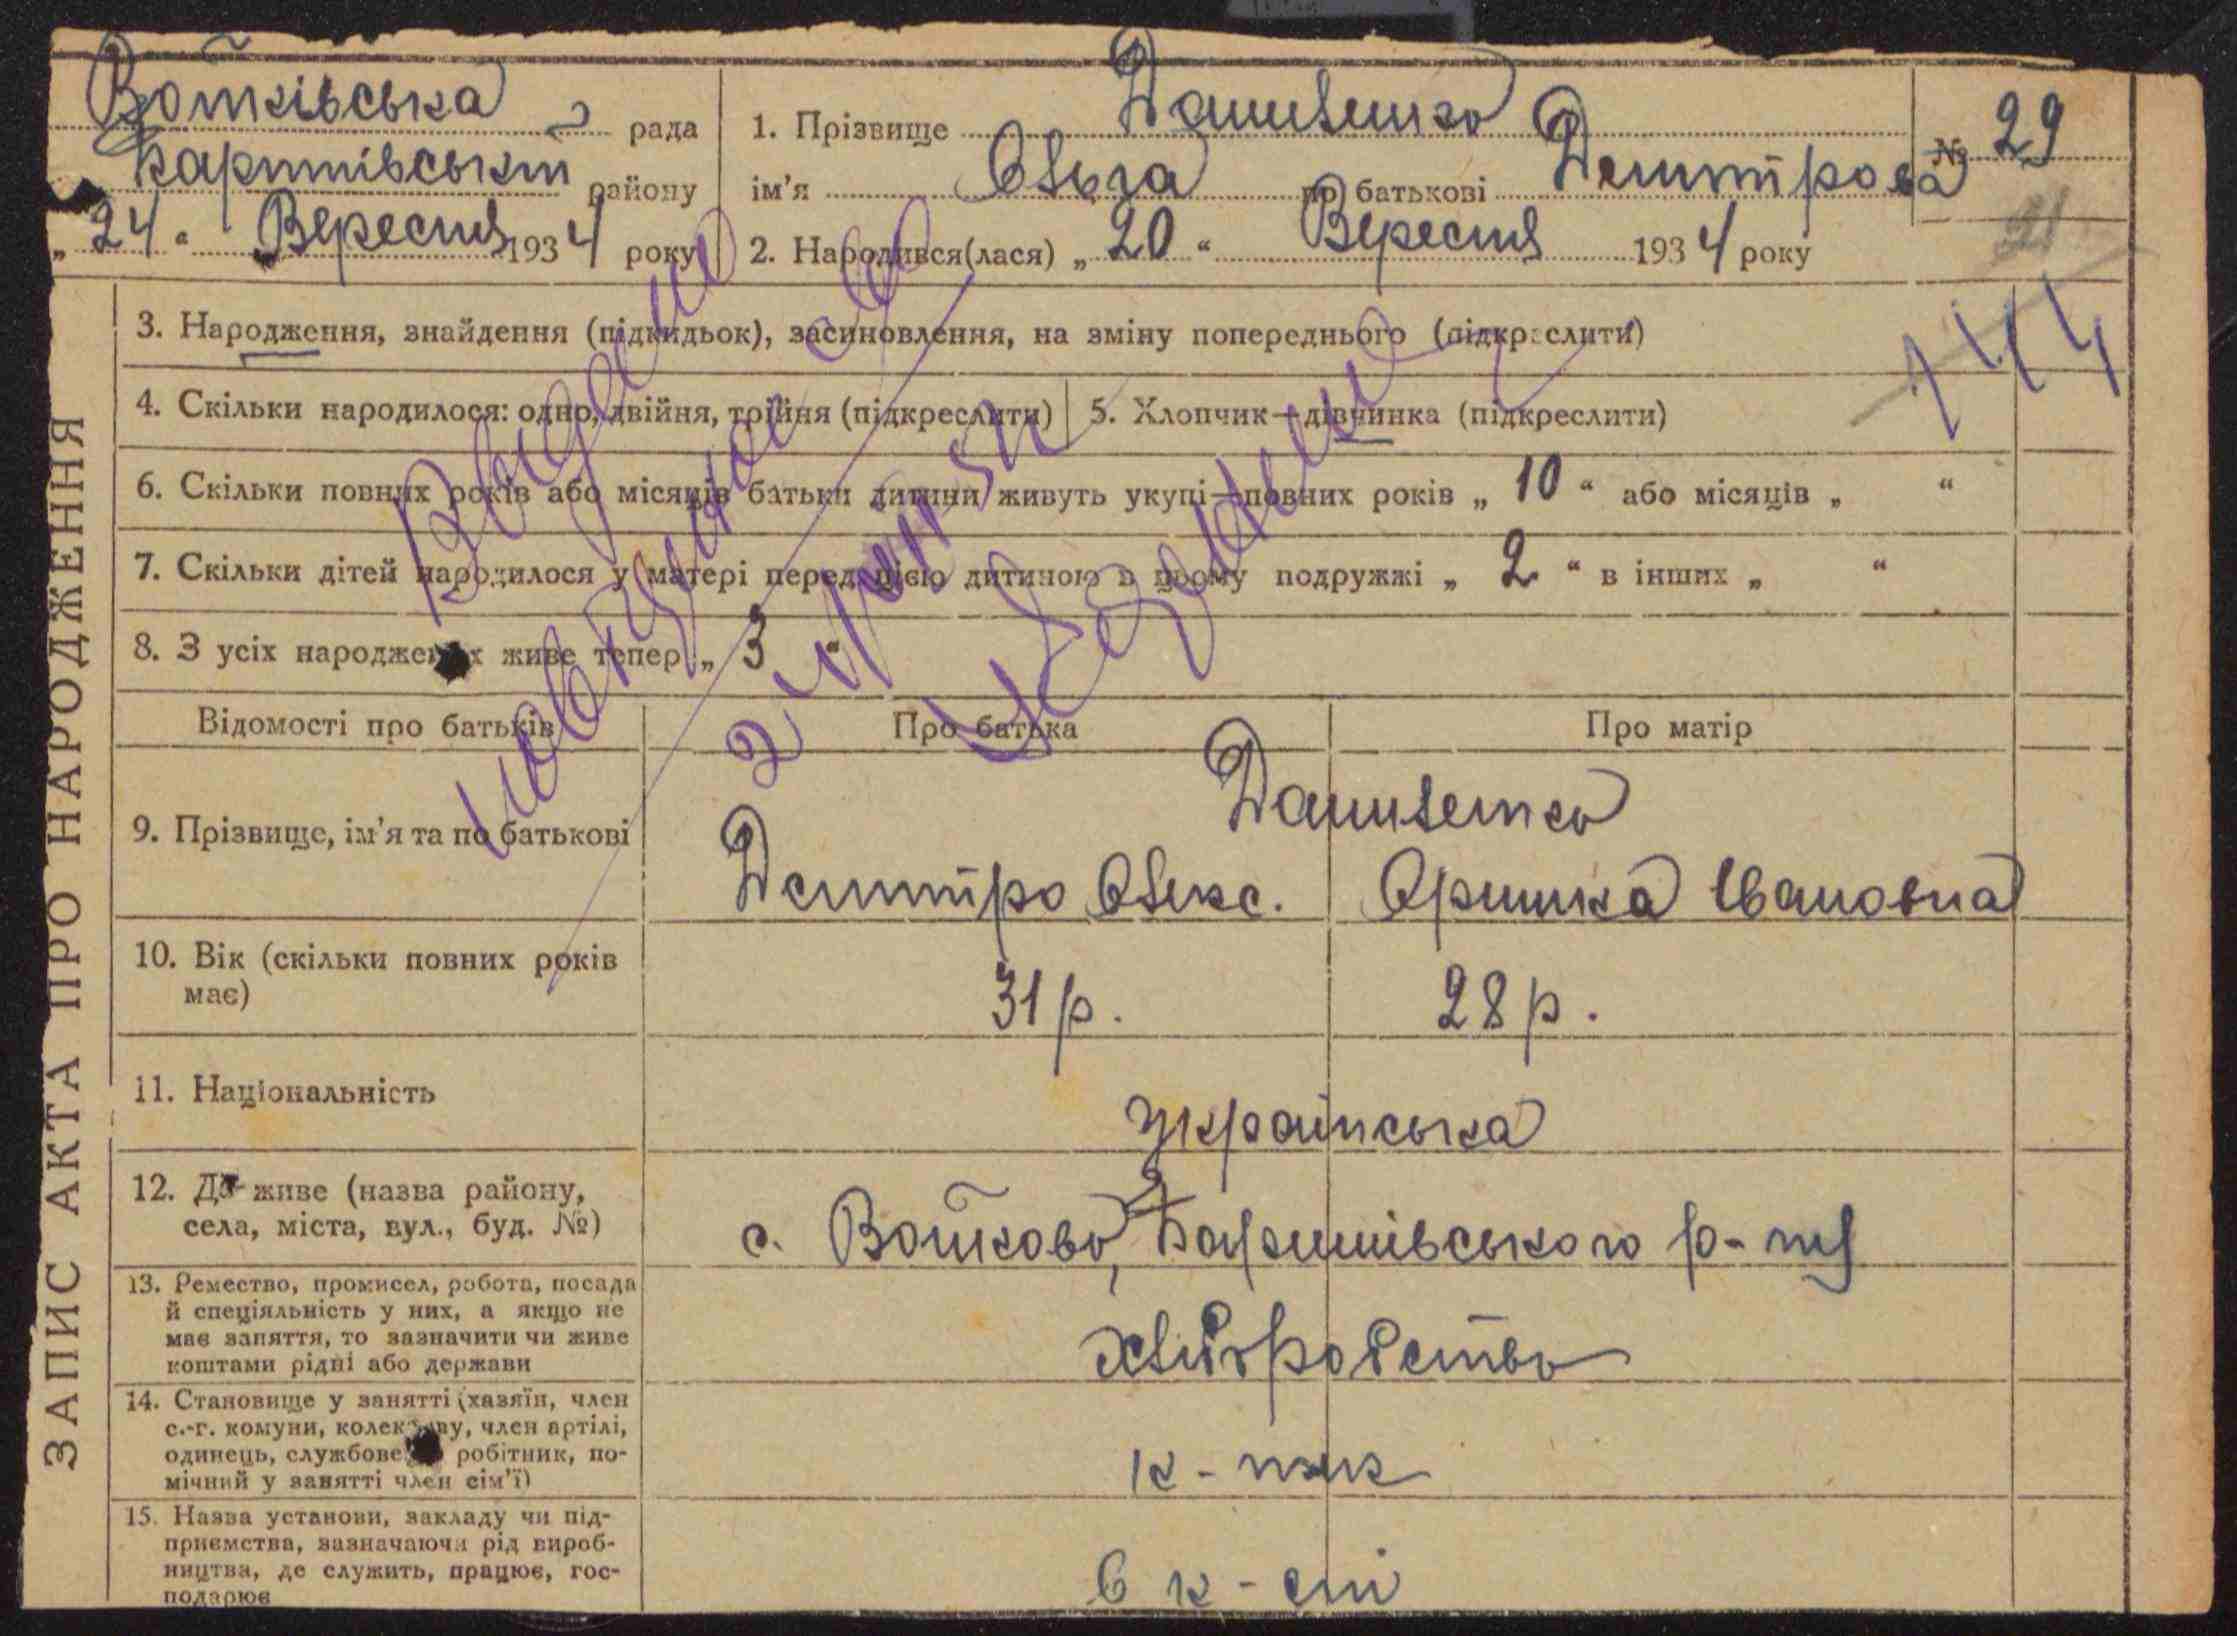 Войтківська рада
Карпилівськ району
„ 24 “ Вересня 1934 року
1. Прізвище Даниленко № 29
ім’я Ольга по батькові Дмитрова
2. Народився(лася) „ 20 “ Вересня 1934 року
144
ЗАПИС АКТА ПРО НАРОДЖЕННЯ
3. Народження, знайдення (підкидьок), засиновлення, на зміну попереднього (підкреслити)
4. Скільки народилося: одно, двійня, трійня (підкреслити) 5. Хлопчик—дівчинка (підкреслити)
6. Скільки повних років або місяців батьки дитини живуть укупі—повних років „ 10 “ або місяців „ “
7. Скільки дітей народилося у матері перед цією дитиною в цьому подружжі „ 2 “ в інших „ “
8. З усіх народжених живе тепер „ 3 “
Выдано
повторное св
Відомості про батьків Про батька Про матір
9. Прізвище, ім’я та по батькові
Даниленко
Дмитро Олекс. Оришка Івановна
10. Вік (скільки повних років
має)
31 р. 28 р.
11. Національність
українська
12. Де живе (назва району,
села, міста, вул., буд. №)
с. Войково, р-ну
13. Ремество, промисел, робота, посада
й спеціяльність у них, а якщо не
має заняття, то зазначити чи живе
коштами рідні або держави
хліборобство
14. Становище у занятті (хазяїн, член
с.-г. комуни, колективу, член артілі,
одинець, службовець, робітник, по-
мічний у занятті член сім’ї)
к-ник
15. Назва установи, закладу чи під-
приємства, зазначаючи рід вироб-
ництва, де служить, працює, гос-
подарює
в к-спі